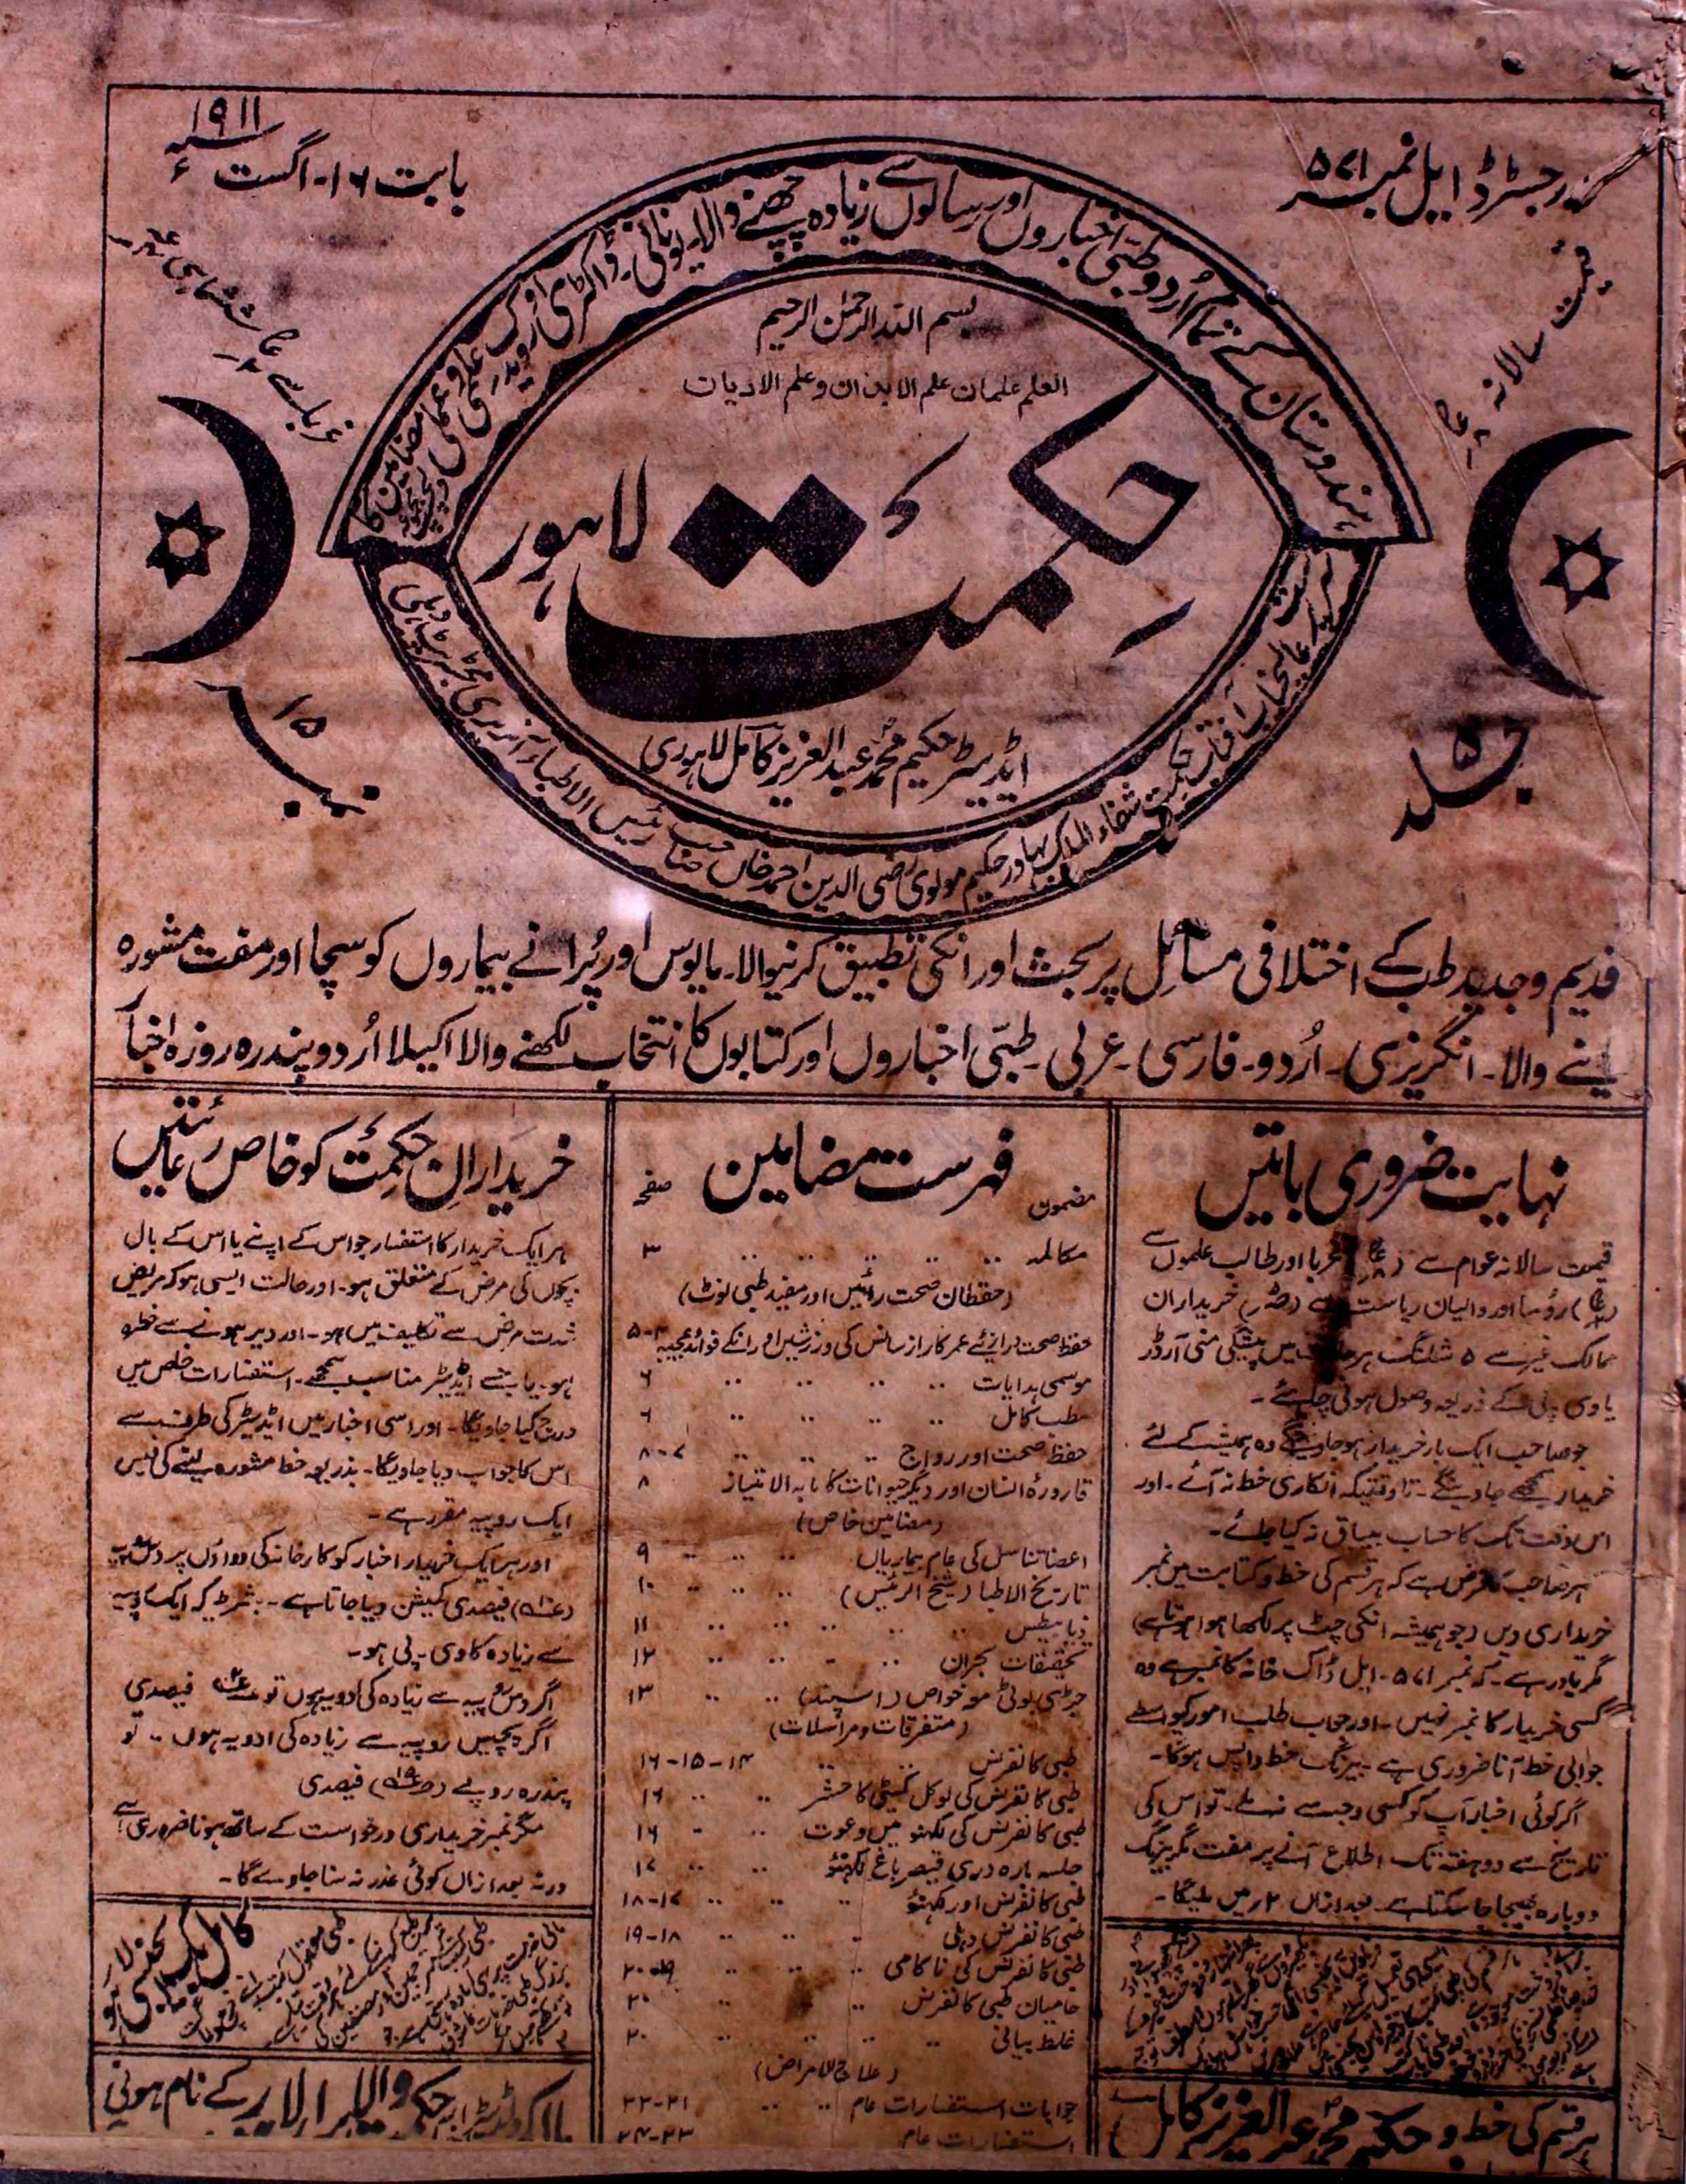 رجسٹرڈ ایل نمبر ۵۷۱
بابت ۱۶- اگست ۱۹۱۱ء
قیمت سالانہ
ہندوستان کے تمام اُردو طبّی اخباروں اور رسالوں سے زیادہ چھپنے والا- یونانی- ڈاکٹری اور
بسم اللہ الرحمٰن الرحیم
العلم علمان علم الابدان وعلم الادیان
حکمت
لاہور
ایڈیٹر حکیم محمد عبد العزیز کامل لاہوری
شفاء الملک بہادر حکیم مولوی رضی الدین احمد خاں صاحب رئیس الاطباء آنریری مجسٹریٹ دہلی
جلد ۵
نمبر ۱۵
قدیم و جدید طب کے اختلافی مسائل پر بحث اور انکی تطبیق کرنیوالا- مایوس اور پُرانے بیماروں کو سچا اور مفت مشورہ
دینے والا- انگریزی- اُردو- فارسی- عربی- طبّی اخباروں اور کتابوں کا انتخاب لکھنے والا اکیلا اُردو پندرہ روزہ اخبار
نہایت ضروری باتیں
قیمت سالانہ عوام سے غربا اور طالب علموں سے
رؤسا اور والیان ریاست سے خریداران
ممالک غیر سے ۵ شلنگ ہر حالت میں پیشگی منی آرڈر
یا وی- پی کے ذریعہ وصول ہونی چاہئے-
جو صاحب ایک بار خریدار ہو جاوینگے وہ ہمیشہ کے لئے
خریدار سمجھے جاوینگے- تا وقتیکہ انکاری خط نہ آئے- اور
اس وقت تک کا حساب بیباق نہ کیا جائے-
ہر صاحب کا فرض ہے کہ ہر قسم کی خط و کتابت میں نمبر
خریداری دیں (جو ہمیشہ انکی چٹ پر لکھا ہوا ہوتا ہے)
مگر یاد رہے- کہ نمبر ۵۷۱- ایل ڈاک خانہ کا نمبر ہے وہ
کسی خریدار کا نمبر نہیں- اور جواب طلب امور کیواسطے
جوابی خط آنا ضروری ہے- بیرنگ خط واپس ہوگا-
اگر کوئی اخبار آپ کو کسی وجہ سے نہ ملے- تو اس کی
تاریخ سے دو ہفتہ تک اطلاع آنے پر مفت مگر بیرنگ
دوبارہ بھیجا جا سکتا ہے- بعد ازاں ۲؍ میں ملیگا-
ہر قسم کی خط و حکیم محمد عبد العزیز کامل
فہرست مضامین
مضمون صفحہ
مکالمہ ۳
(حفظان صحت رائیں اور مفید طبی نوٹ)
حفظ صحت درازئے عمر کا راز سانس کی ورزشیں اور انکے فوائد عجیبہ ۴-۵
موسمی ہدایات ۶
مطب کامل ۶
حفظ صحت اور رواج ۷-۸
قارورۂ انسان اور دیگر حیوانات کا مابہ الامتیاز ۸
(مضامین خاص)
اعضا تناسل کی عام بیماریاں ۹
تاریخ الاطبا (شیخ الرئیس) ۱۰
ذیابیطس ۱۱
تحقیقات بحران ۱۲
جڑی بوٹی مو خواص (اسپند) ۱۳
(متفرقات و مراسلات)
طبی کانفرنس ۱۴-۱۵-۱۶
طبی کانفرنس کی لوکل کمیٹی کا حشر ۱۶
طبی کانفرنس کی لکھنؤ میں دعوت ۱۶
جلسہ بارہ دری قیصر باغ لکھنؤ ۱۷
طبی کانفرنس اور لکھنؤ ۱۷-۱۸
طبی کانفرنس دہلی ۱۸-۱۹
طبی کانفرنس کی ناکامی ۱۹-۲۰
حامیان طبی کانفرنس ۲۰
غلط بیانی ۲۰
(علاج الامراض)
جوابات استفسارات عام ۲۱-۲۲
استفسارات عام ۲۳-۲۴
خریداران حکمت کو خاص رعائتیں
ہر ایک خریدار کا استفسار جو اس کے اپنے یا اس کے بال
بچوں کی مرض کے متعلق ہو- اور حالت ایسی ہو کہ مریض
شدت مرض سے تکلیف میں ہو- اور دیر ہونے سے خطرہ
ہو- یا جسے ایڈیٹر مناسب سمجھے- استفسارات خاص میں
درج کیا جاویگا- اور اسی اخبار میں ایڈیٹر کی طرف سے
اس کا جواب دیا جاویگا- بذریعہ خط مشورہ لینے کی فیس
ایک روپیہ مقرر ہے-
اور ہر ایک خریدار اخبار کو کارخانہ کی دواؤں پر
فیصدی کمیشن دیا جاتا ہے- بشرطیکہ ایک روپیہ
سے زیادہ کا وی- پی ہو-
اگر دس روپیہ سے زیادہ کی ادویہ ہوں تو فیصدی
اگر پچیس روپیہ سے زیادہ کی ادویہ ہوں- تو
پندرہ روپے فیصدی
مگر نمبر خریداری درخواست کے ساتھ ہونا ضروری ہے
ورنہ بعد ازاں کوئی عذر نہ سنا جاوے گا-
کامل بک ایجنسی لاہور